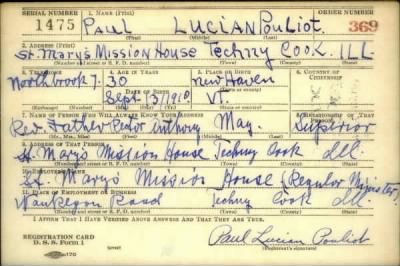 SERIAL NUMBER 1. NAME (Print) ORDER NUMBER
1475 PAUL LUCIAN Pouliot. 369
(First) (Middle) (Last)
2. ADDRESS (Print)
St. Marys Mission House Techny Cook. ILL.
(Number and street or R. F. D. number) (Town) (County) (State)
3. TELEPHONE 4. AGE IN YEARS 5. PLACE OF BIRTH 6. COUNTRY OF CITIZENSHIP
Northbrook 7. 30 New Haven
DATE OF BIRTH (Town or county)
Sept 13 1910 VT
(Exchange) (Number) (Mo.) (Day) (Yr.) (State or country)
7. NAME OF PERSON WHO WILL ALWAYS KNOW YOUR ADDRESS 8. RELATIONSHIP OF THAT PERSON
Rev. Father Rector Anthony May. Superior
(Mr., Mrs., Miss) (First) (Middle) (Last)
9. ADDRESS OF THAT PERSON
St. Marys Mission House Techny Cook Ill.
(Number and street or R. F. D. number) (Town) (County) (State)
10. EMPLOYER'S NAME
St. Marys Mission House (Regular
11. PLACE OF EMPLOYMENT OR BUSINESS
Waukegon Road Techny Cook Ill.
(Number and street or R. F. D. number) (Town) (County) (State)
I AFFIRM THAT I HAVE VERIFIED ABOVE ANSWERS AND THAT THEY ARE TRUE.
REGISTRATION CARD
D. S. S. FORM 1
Paul Lucian Pouliot
(Registrant's signature)